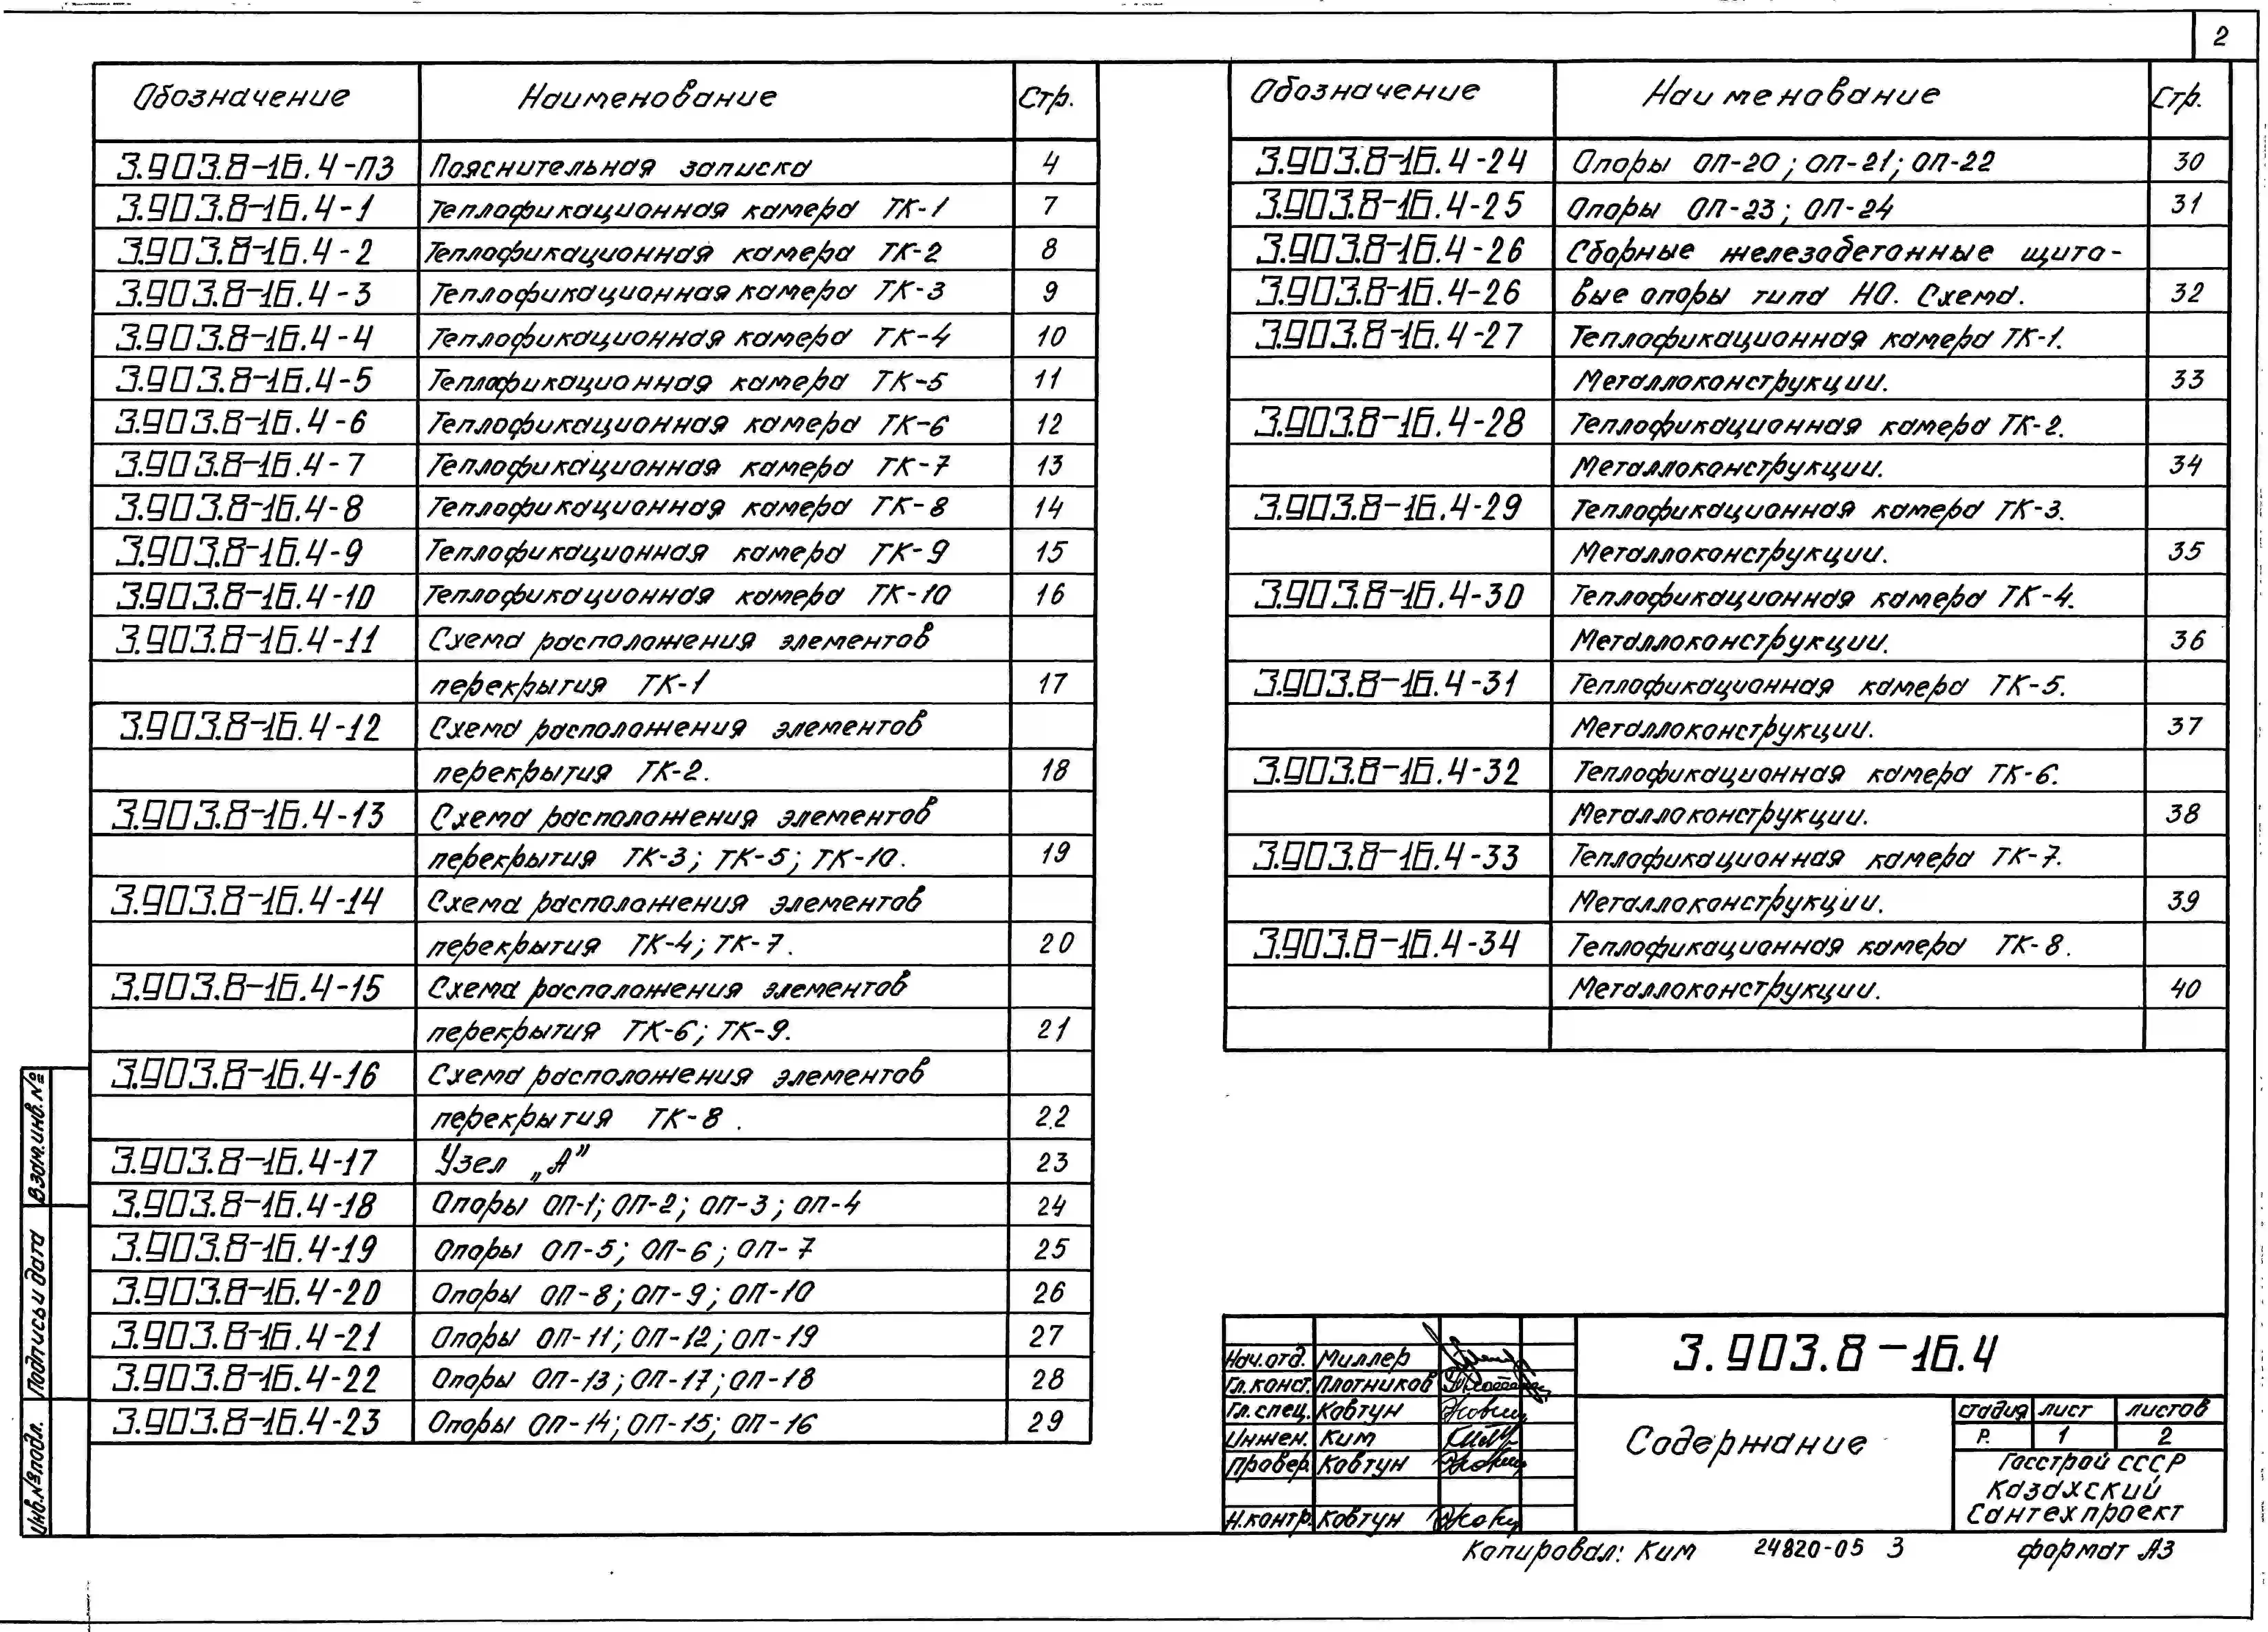 2
Обозначение Наименование Стр.
3.903.8-16.4-ПЗ Пояснительная записка 4
3.903.8-16.4-1 Теплофикационная камера ТК-1 7
3.903.8-16.4-2 Теплофикационная камера ТК-2 8
3.903.8-16.4-3 Теплофикационная камера ТК-3 9
3.903.8-16.4-4 Теплофикационная камера ТК-4 10
3.903.8-16.4-5 Теплофикационная камера ТК-5 11
3.903.8-16.4-6 Теплофикационная камера ТК-6 12
3.903.8-16.4-7 Теплофикационная камера ТК-7 13
3.903.8-16.4-8 Теплофикационная камера ТК-8 14
3.903.8-16.4-9 Теплофикационная камера ТК-9 15
3.903.8-16.4-10 Теплофикационная камера ТК-10 16
3.903.8-16.4-11 Схема расположения элементов
перекрытия ТК-1 17
3.903.8-16.4-12 Схема расположения элементов
перекрытия ТК-2. 18
3.903.8-16.4-13 Схема расположения элементов
перекрытия ТК-3; ТК-5; ТК-10. 19
3.903.8-16.4-14 Схема расположения элементов
перекрытия ТК-4; ТК-7. 20
3.903.8-16.4-15 Схема расположения элементов
перекрытия ТК-6; ТК-9. 21
3.903.8-16.4-16 Схема расположения элементов
перекрытия ТК-8. 22
3.903.8-16.4-17 Узел „А” 23
3.903.8-16.4-18 Опоры ОП-1; ОП-2; ОП-3; ОП-4 24
3.903.8-16.4-19 Опоры ОП-5; ОП-6; ОП-7 25
3.903.8-16.4-20 Опоры ОП-8; ОП-9; ОП-10 26
3.903.8-16.4-21 Опоры ОП-11; ОП-12; ОП-19 27
3.903.8-16.4-22 Опоры ОП-13; ОП-17; ОП-18 28
3.903.8-16.4-23 Опоры ОП-14; ОП-15; ОП-16 29
Обозначение Наименование Стр.
3.903.8-16.4-24 Опоры ОП-20; ОП-21; ОП-22 30
3.903.8-16.4-25 Опоры ОП-23; ОП-24 31
3.903.8-16.4-26 Сборные железобетонные щито-
3.903.8-16.4-26 вые опоры типа НО. Схема. 32
3.903.8-16.4-27 Теплофикационная камера ТК-1.
Металлоконструкции. 33
3.903.8-16.4-28 Теплофикационная камера ТК-2.
Металлоконструкции. 34
3.903.8-16.4-29 Теплофикационная камера ТК-3.
Металлоконструкции. 35
3.903.8-16.4-30 Теплофикационная камера ТК-4.
Металлоконструкции. 36
3.903.8-16.4-31 Теплофикационная камера ТК-5.
Металлоконструкции. 37
3.903.8-16.4-32 Теплофикационная камера ТК-6.
Металлоконструкции. 38
3.903.8-16.4-33 Теплофикационная камера ТК-7.
Металлоконструкции. 39
3.903.8-16.4-34 Теплофикационная камера ТК-8.
Металлоконструкции. 40
Взам.инв.№
Подпись и дата
Инв.№подл.
Нач.отд. Миллер
Гл.конст. Плотников
Гл.спец. Ковтун
Инжен. Ким
Провер. Ковтун
Н.контр. Ковтун
3.903.8-16.4
Содержание
стадия лист листов
Р. 1 2
Госстрой СССР
Казахский
Сантехпроект
Копировал: Ким 24820-05 3 формат А3